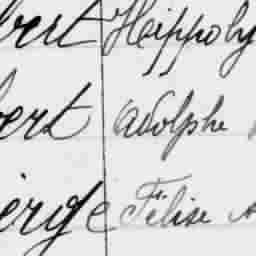 bert Hippoly
bert Adolphe
ierge Félise